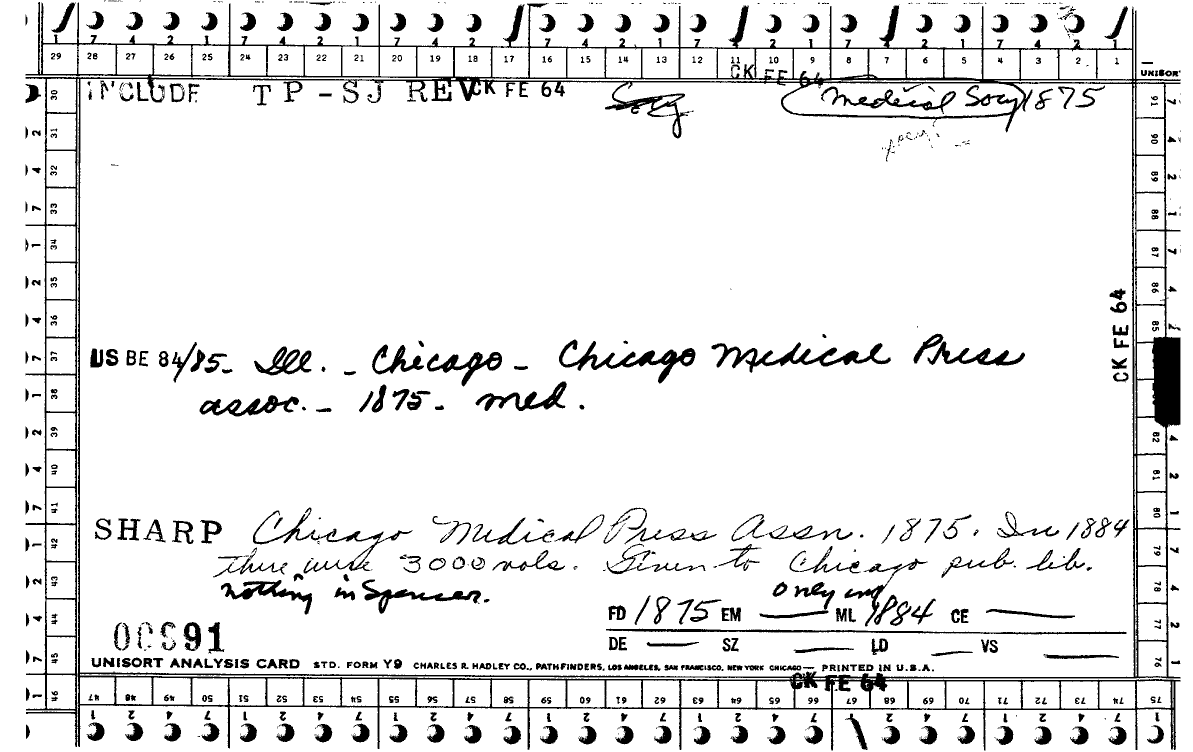 7 4 2 1 7 4 2 1 7 4 2 1 7 4 2 1 7 4 2 1 7 4 2 1 7 4 2 1
29 28 27 26 25 24 23 22 21 20 19 18 17 16 15 14 13 12 11 10 9 8 7 6 5 4 3 2 1
CK FE 64
UNISORT
INCLUDE TP-SJ REV CK FE 64 Medical Socy 1875
CK FE 64
US BE 84/85- Ill. - Chicago - Chicago Medical Press
assoc. - 1875 - med.
SHARP Chicago Medical Press Assn. 1875. In 1884
there were 3000 vols. Given to Chicago pub. lib.
nothing in Spencer. only in
FD 1875 EM — ML 1884 CE —
DE — SZ — LD — VS —
00S91
UNISORT ANALYSIS CARD STD. FORM Y9 CHARLES R. HADLEY CO., PATHFINDERS, LOS ANGELES, SAN FRANCISCO, NEW YORK CHICAGO — PRINTED IN U.S.A.
CK FE 64
46 47 48 49 50 51 52 53 54 55 56 57 58 59 60 61 62 63 64 65 66 67 68 69 70 71 72 73 74 75